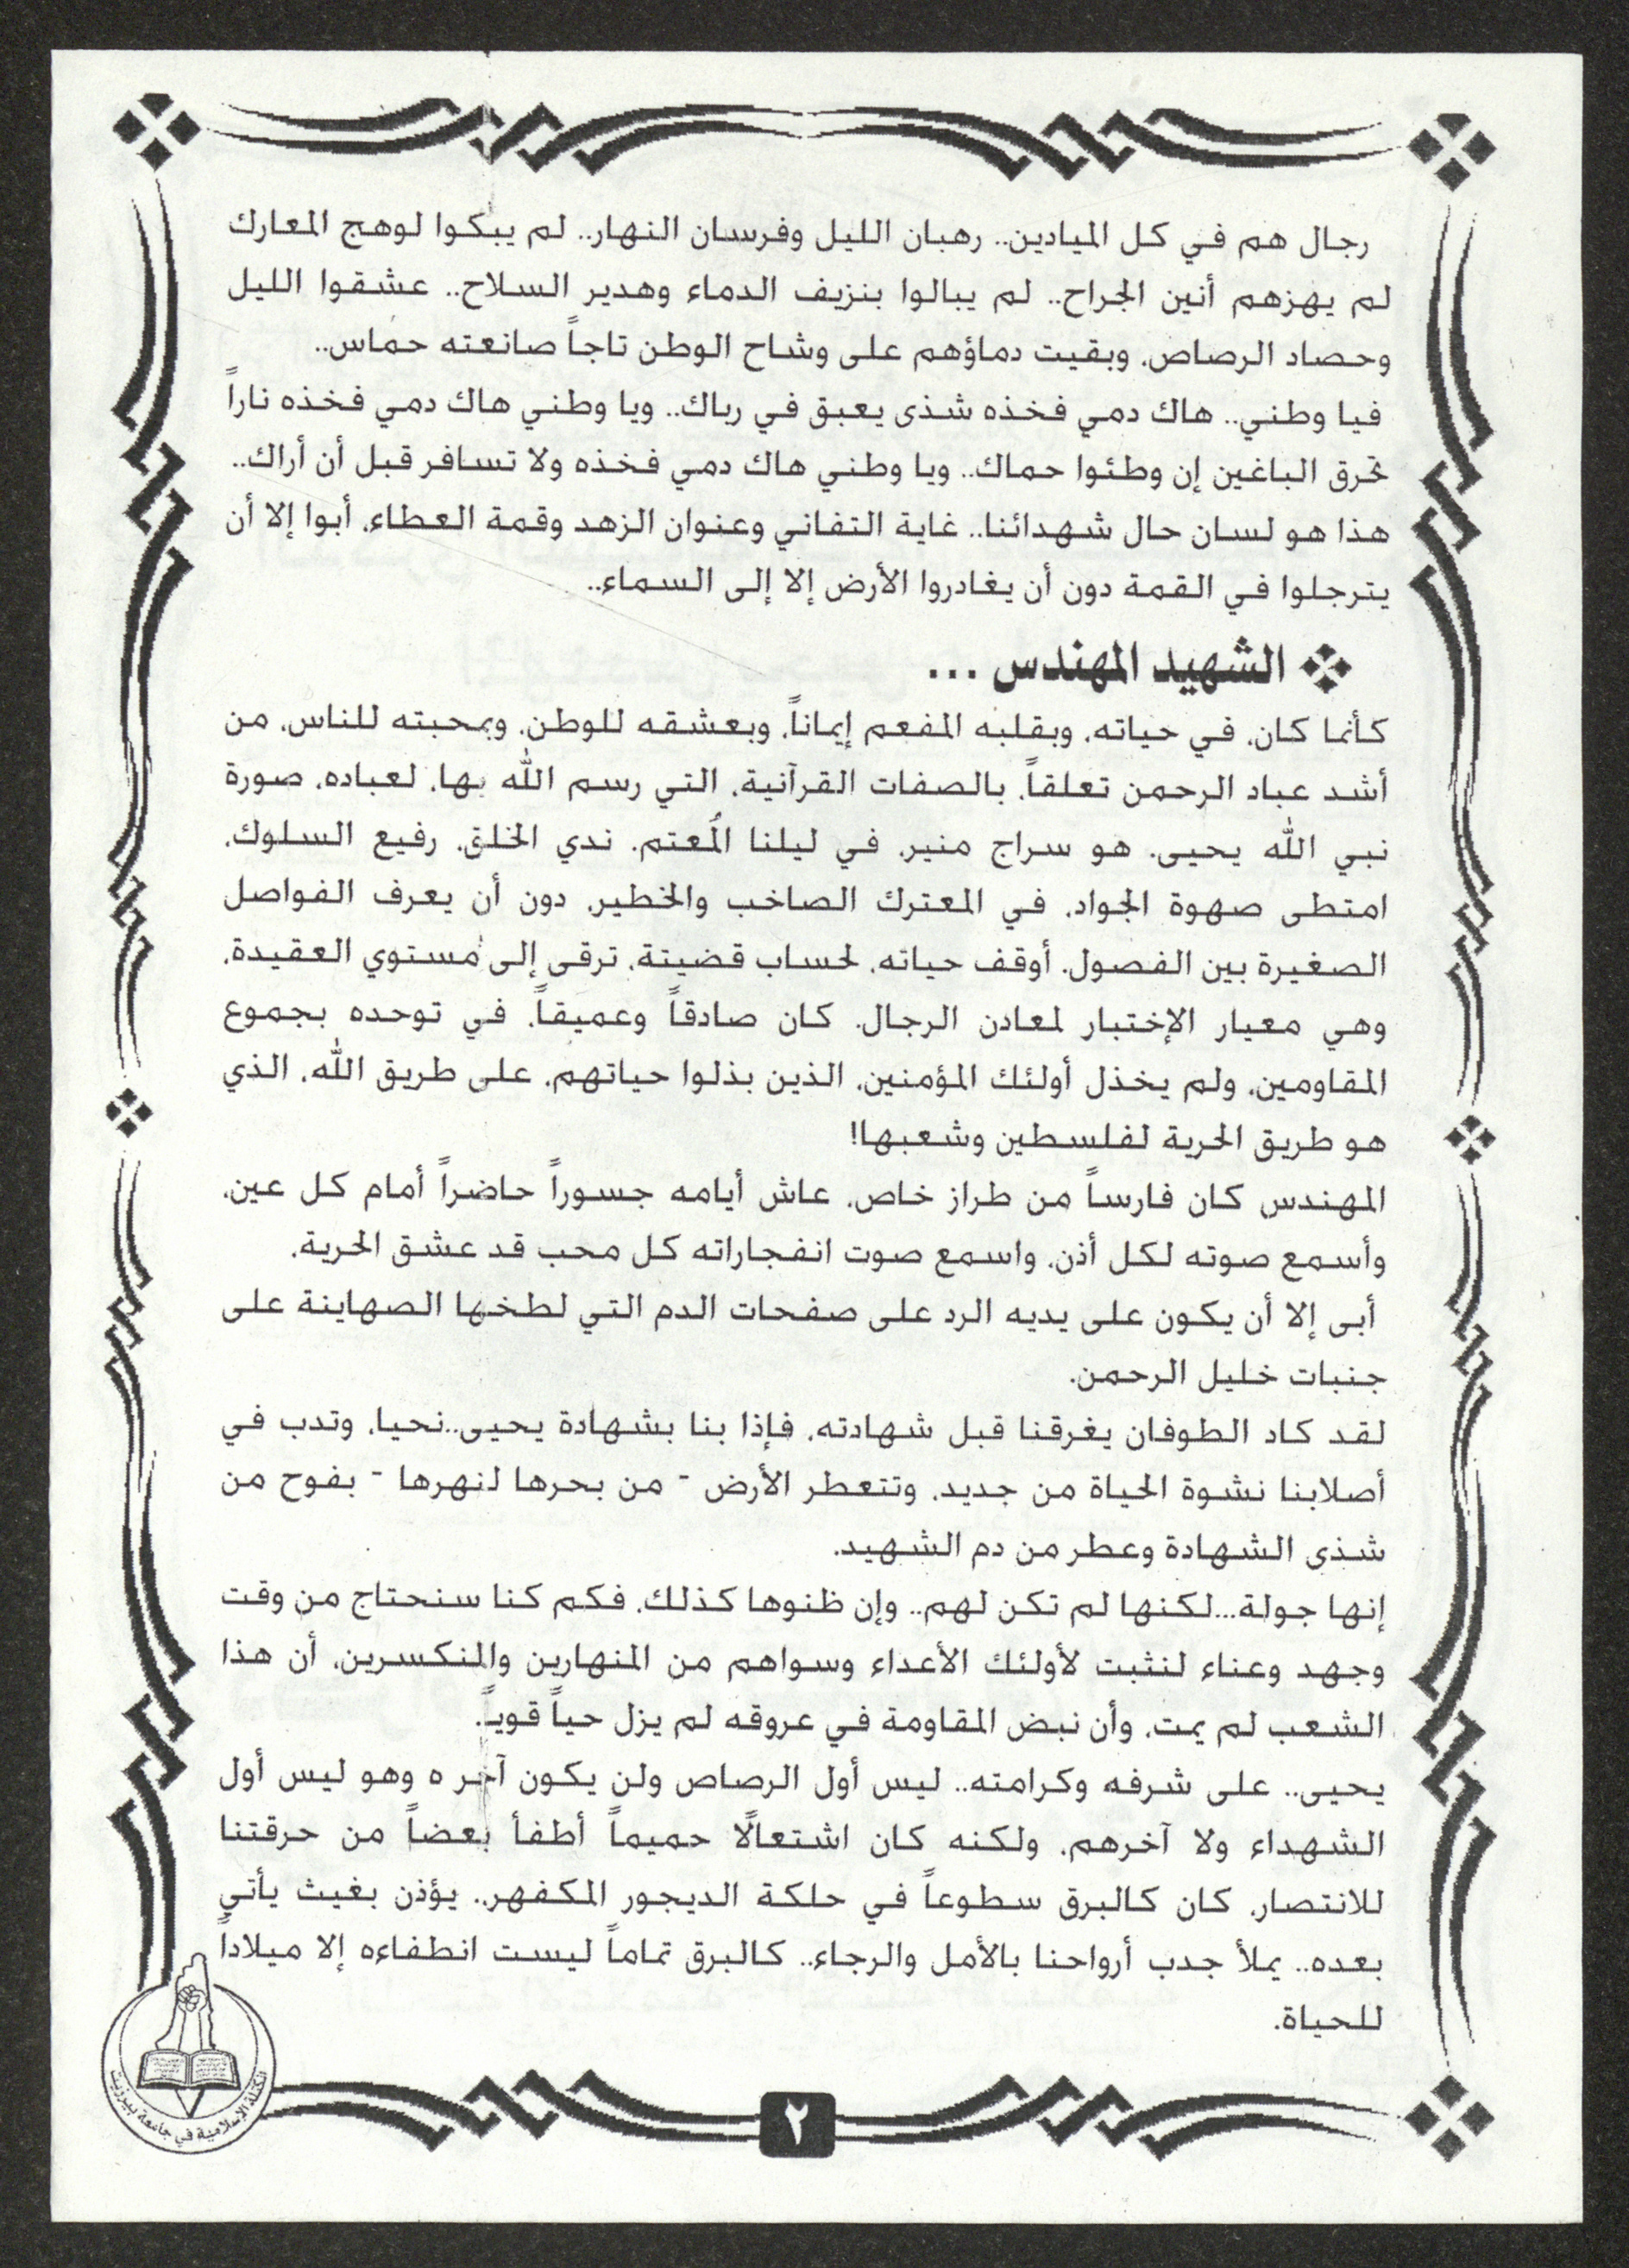 رجال هم في كل الميادين.. رهبان الليل وفرسان النهار.. لم يبكوا لوهج المعارك
لم يهزهم أنين الجراح.. لم يبالوا بنزيف الدماء وهدير السلاح.. عشقوا الليل
وحصاد الرصاص، وبقيت دماؤهم على وشاح الوطن تاجاً صانعته حماس..
فيا وطني.. هاك دمي فخذه شذى يعبق في رباك.. ويا وطني هاك دمي فخذه ناراً
تحرق الباغين إن وطئوا حماك.. ويا وطني هاك دمي فخذه ولا تسافر قبل أن أراك..
هذا هو لسان حال شهدائنا.. غاية التفاني وعنوان الزهد وقمة العطاء، أبوا إلا أن
يترجلوا في القمة دون أن يغادروا الأرض إلا إلى السماء..
الشهيد المهندس ...
كأنما كان، في حياته، وبقلبه المفعم إيماناً، وبعشقه للوطن، وبمحبته للناس، من
أشد عباد الرحمن تعلقاً، بالصفات القرآنية، التي رسم الله بها، لعباده، صورة
نبي الله يحيى. هو سراج منير، في ليلنا المُعتم. ندي الخلق، رفيع السلوك،
امتطى صهوة الجواد، في المعترك الصاخب والخطير، دون أن يعرف الفواصل
الصغيرة بين الفصول. أوقف حياته، لحساب قضيتة، ترقى إلى مستوي العقيدة،
وهي معيار الإختبار لمعادن الرجال. كان صادقاً وعميقاً، في توحده بجموع
المقاومين، ولم يخذل أولئك المؤمنين، الذين بذلوا حياتهم، على طريق الله، الذي
هو طريق الحرية لفلسطين وشعبها!
المهندس كان فارساً من طراز خاص، عاش أيامه جسوراً حاضراً أمام كل عين،
وأسمع صوته لكل أذن، واسمع صوت انفجاراته كل محب قد عشق الحرية،
أبى إلا أن يكون على يديه الرد على صفحات الدم التي لطخها الصهاينة على
جنبات خليل الرحمن.
لقد كاد الطوفان يغرقنا قبل شهادته، فإذا بنا بشهادة يحيى..نحيا، وتدب في
أصلابنا نشوة الحياة من جديد، وتتعطر الأرض - من بحرها لنهرها - بفوح من
شذى الشهادة وعطر من دم الشهيد.
إنها جولة...لكنها لم تكن لهم.. وإن ظنوها كذلك، فكم كنا سنحتاج من وقت
وجهد وعناء لنثبت لأولئك الأعداء وسواهم من المنهارين والمنكسرين، أن هذا
الشعب لم يمت، وأن نبض المقاومة في عروقه لم يزل حياً قوياً.
يحيى.. على شرفه وكرامته.. ليس أول الرصاص ولن يكون آخر ه وهو ليس أول
الشهداء ولا آخرهم، ولكنه كان اشتعالًا حميماً أطفأ بعضاً من حرقتنا
للانتصار، كان كالبرق سطوعاً في حلكة الديجور المكفهر.. يؤذن بغيث يأتي
بعده.. يملأ جدب أرواحنا بالأمل والرجاء.. كالبرق تماماً ليست انطفاءه إلا ميلاداً
للحياة.
الكتلة الإسلامية في جامعة بيرزيت
٢